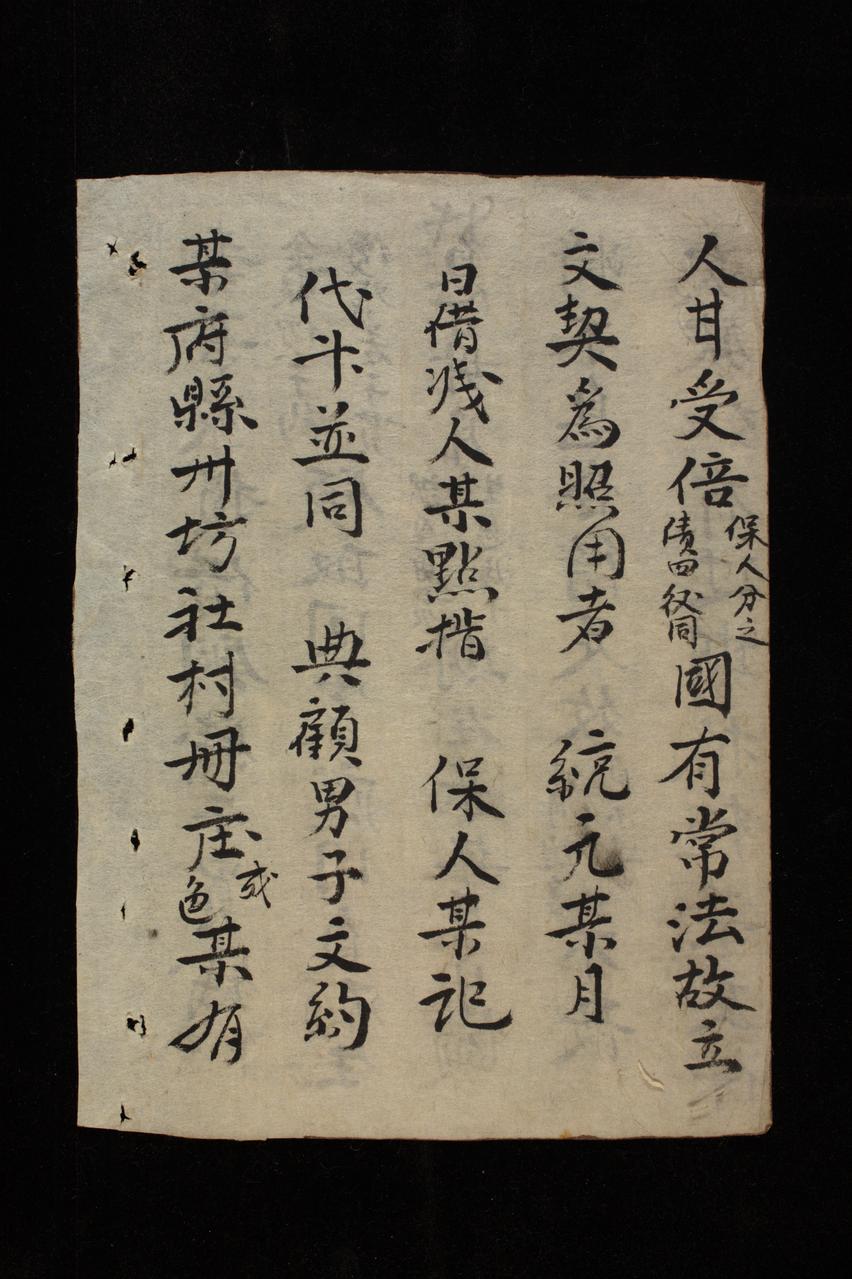 人甘受倍
保人分之
債四
同
國有常法故立
文契爲照用者 統元某月
日借浅人某點指 保人某記
代卞並同 典顧男子文約
某府縣州坊社村冊庄
或
色
某有